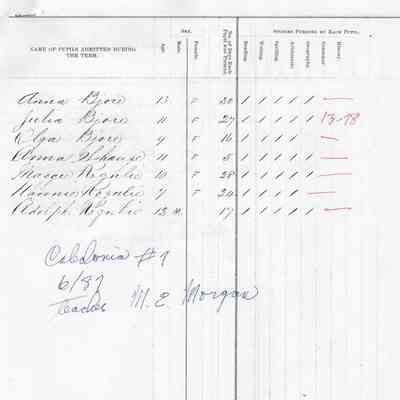 NAME OF PUPILS ADMITTED DURING THE TERM.
Age.
SEX.
Male.
Female.
No. of Days Each Pupil was Present.
STUDIES PURSUED BY EACH PUPIL.
Reading.
Writing.
Spelling.
Arithmetic.
Geography.
Grammar.
History.
Anna Bjore 13 F 20 / / / / / —
Julia Bjore 11 F 27 / / / / / 13-78
Olga Bjore 9 F 16 / / / / —
Anna 11 F 5 / / / / / —
10 F 28 / / / / / —
7 F 24 / / / / / —
Adolph 12 M. 17 / / / / / —
Caledonia #7
6/87
Teacher M. E. Morgan